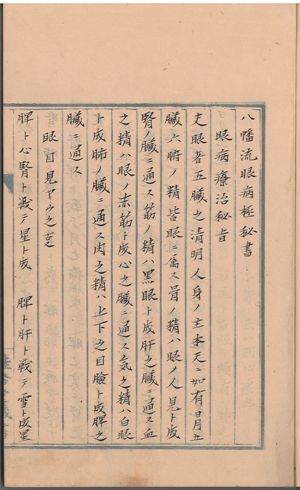 八幡流眼病極秘書
眼病療治秘旨
夫眼者五臓之清明人身ノ主本天ニ如有日月五
臓六腑ノ精皆眼ニ富ス骨ノ精ハ眼ノ人見ト成
腎ノ臓ニ通ス筋ノ精ハ黒眼ト成肝之臓ニ通ス血
之精ハ眼ノ赤筋ト成心之臓ニ通ス気之精ハ白眼
ト成肺ノ臓ニ通ス肉之精ハ上下之目瞼ト成脾之
臓ニ通ス
眼目見ヤウ之叓
脾ト心腎ト戦テ星ト成 脾ト肝ト戦テ雪ト成星